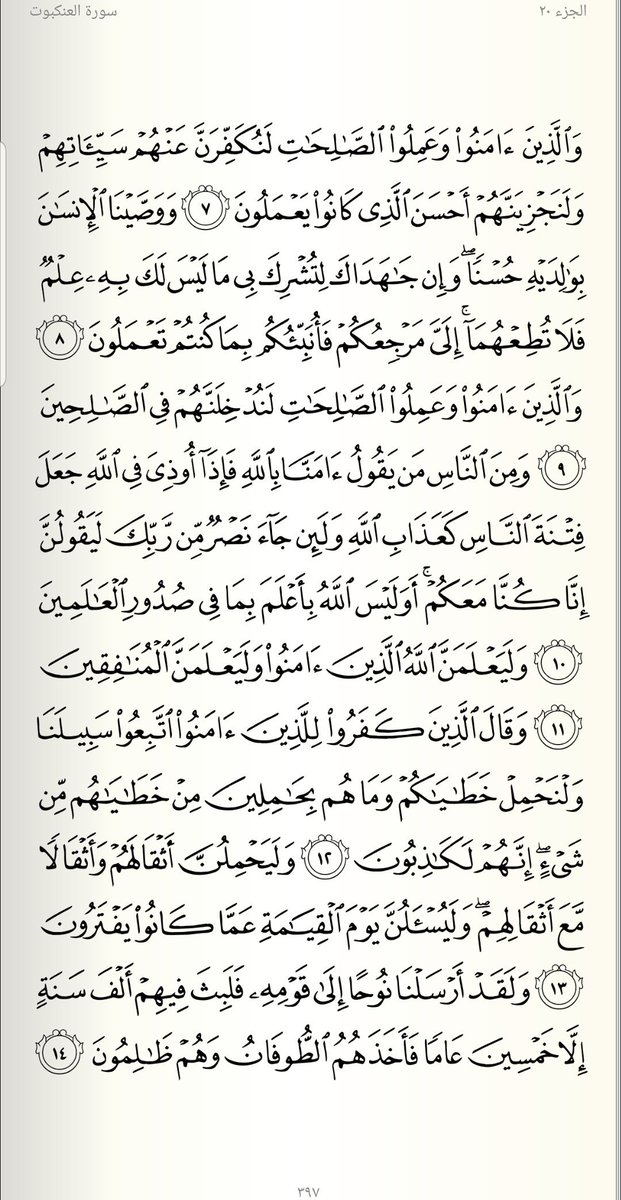 الجزء ٢٠
سورة العنكبوت
وَٱلَّذِينَ ءَامَنُوا۟ وَعَمِلُوا۟ ٱلصَّـٰلِحَـٰتِ لَنُكَفِّرَنَّ عَنْهُمْ سَيِّـَٔاتِهِمْ
وَلَنَجْزِيَنَّهُمْ أَحْسَنَ ٱلَّذِى كَانُوا۟ يَعْمَلُونَ ٧ وَوَصَّيْنَا ٱلْإِنسَـٰنَ
بِوَٰلِدَيْهِ حُسْنًۭا ۖ وَإِن جَـٰهَدَاكَ لِتُشْرِكَ بِى مَا لَيْسَ لَكَ بِهِۦ عِلْمٌۭ
فَلَا تُطِعْهُمَآ ۚ إِلَىَّ مَرْجِعُكُمْ فَأُنَبِّئُكُم بِمَا كُنتُمْ تَعْمَلُونَ ٨
وَٱلَّذِينَ ءَامَنُوا۟ وَعَمِلُوا۟ ٱلصَّـٰلِحَـٰتِ لَنُدْخِلَنَّهُمْ فِى ٱلصَّـٰلِحِينَ
٩ وَمِنَ ٱلنَّاسِ مَن يَقُولُ ءَامَنَّا بِٱللَّهِ فَإِذَآ أُوذِىَ فِى ٱللَّهِ جَعَلَ
فِتْنَةَ ٱلنَّاسِ كَعَذَابِ ٱللَّهِ وَلَئِن جَآءَ نَصْرٌۭ مِّن رَّبِّكَ لَيَقُولُنَّ
إِنَّا كُنَّا مَعَكُمْ ۚ أَوَلَيْسَ ٱللَّهُ بِأَعْلَمَ بِمَا فِى صُدُورِ ٱلْعَـٰلَمِينَ
١٠ وَلَيَعْلَمَنَّ ٱللَّهُ ٱلَّذِينَ ءَامَنُوا۟ وَلَيَعْلَمَنَّ ٱلْمُنَـٰفِقِينَ
١١ وَقَالَ ٱلَّذِينَ كَفَرُوا۟ لِلَّذِينَ ءَامَنُوا۟ ٱتَّبِعُوا۟ سَبِيلَنَا
وَلْنَحْمِلْ خَطَـٰيَـٰكُمْ وَمَا هُم بِحَـٰمِلِينَ مِنْ خَطَـٰيَـٰهُم مِّن
شَىْءٍ ۖ إِنَّهُمْ لَكَـٰذِبُونَ ١٢ وَلَيَحْمِلُنَّ أَثْقَالَهُمْ وَأَثْقَالًۭا
مَّعَ أَثْقَالِهِمْ ۖ وَلَيُسْـَٔلُنَّ يَوْمَ ٱلْقِيَـٰمَةِ عَمَّا كَانُوا۟ يَفْتَرُونَ
١٣ وَلَقَدْ أَرْسَلْنَا نُوحًا إِلَىٰ قَوْمِهِۦ فَلَبِثَ فِيهِمْ أَلْفَ سَنَةٍ
إِلَّا خَمْسِينَ عَامًۭا فَأَخَذَهُمُ ٱلطُّوفَانُ وَهُمْ ظَـٰلِمُونَ ١٤
٣٩٧